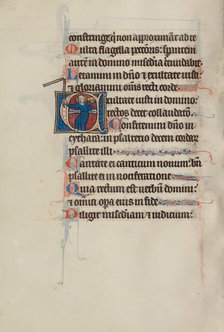 constringe qui non approximant ad te
Multa flagella peccatoris: sperantem
autem in domino misericordia
Letamini in domino et exultate iusti
et gloriamini omnes recti corde
Exultate iusti in domino:
rectos decet collaudatio
Confitemini domino in
cythara: in psalterio decem cordarum
psallite illi
Cantate ei canticum novum: bene
psallite ei in vociferatione
Quia rectum est verbum domini:
et omnia opera eius in fide
Diligit misericordiam et iudicium: